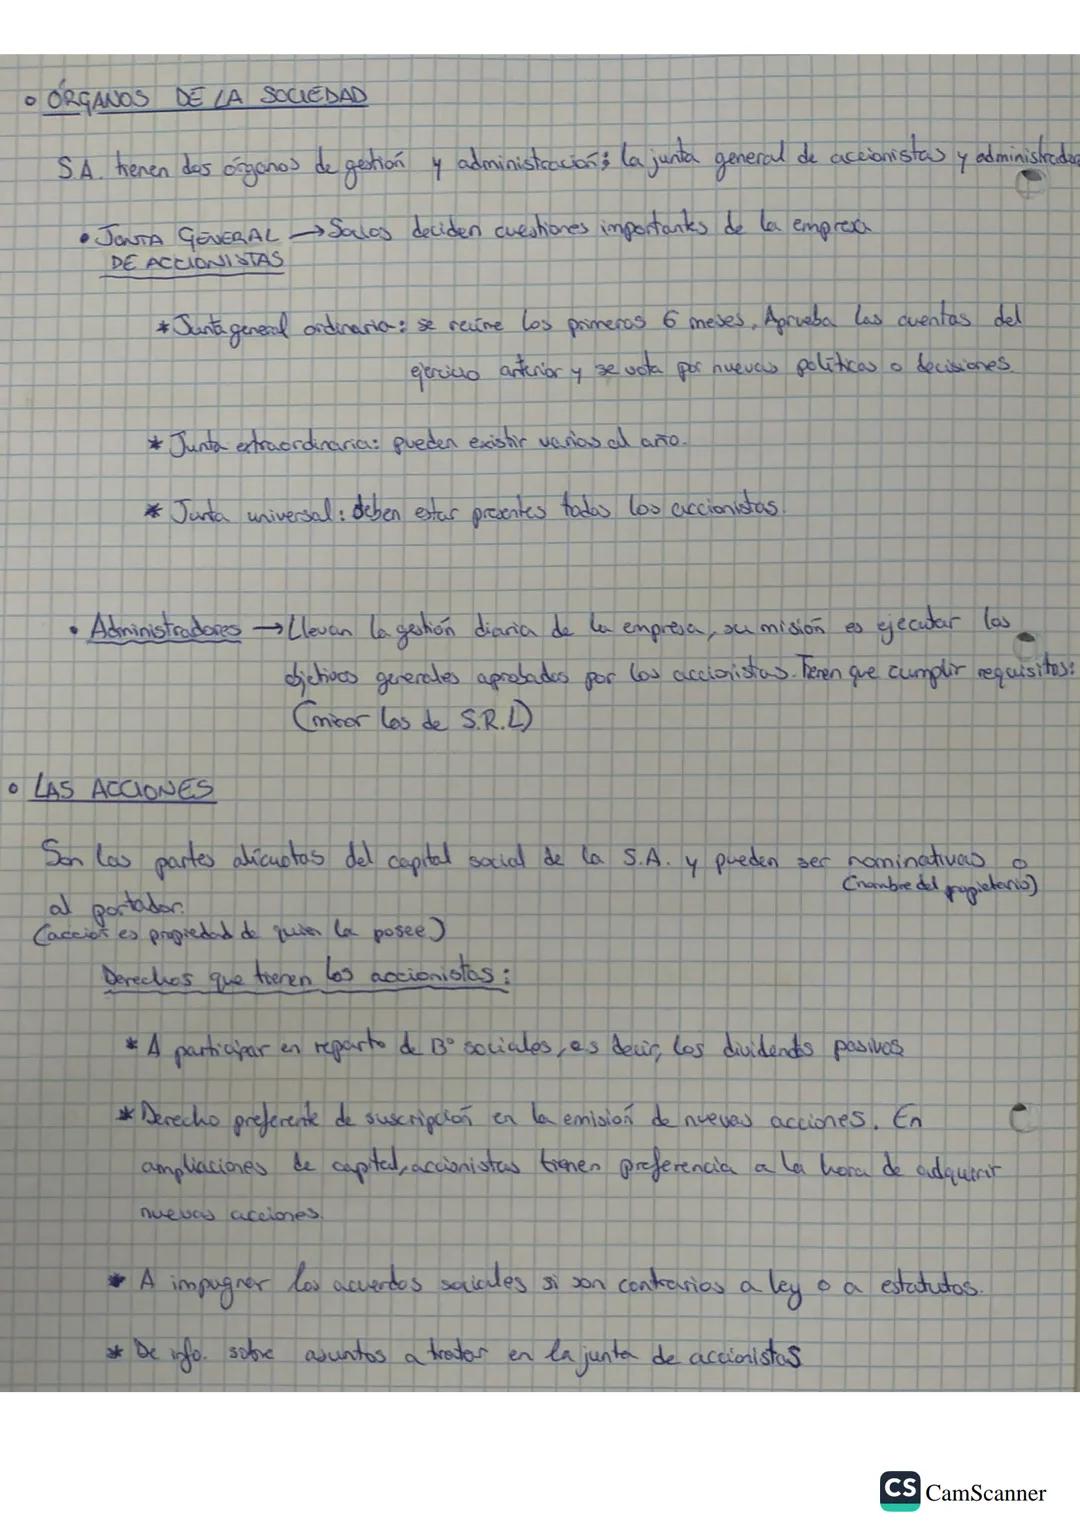 ÓRGANOS DE LA SOCIEDAD
S.A. tienen dos órganos de gestión y administración: la junta general de accionistas y administrador
JUNTA GENERAL → Socios deciden cuestiones importantes de la empresa
DE ACCIONISTAS
* Junta general ordinaria: se reúne los primeros 6 meses. Aprueba las cuentas del
ejercicio anterior y se vota por nuevas políticas o decisiones.
* Junta extraordinaria: pueden existir varias al año.
* Junta universal: deben estar presentes todos los accionistas.
• Administradores → Llevan la gestión diaria de la empresa, su misión es ejecutar los
objetivos generales aprobados por los accionistas. Tienen que cumplir requisitos:
(mirar los de S.R.L)
LAS ACCIONES
Son las partes alícuotas del capital social de la S.A. y pueden ser nominativas o
(nombre del propietario)
al portador.
(acción es propiedad de quien la posee)
Derechos que tienen los accionistas:
* A participar en reparto de Bº sociales, es decir, los dividendos pasivos
* Derecho preferente de suscripción en la emisión de nuevas acciones. En
ampliaciones de capital, accionistas tienen preferencia a la hora de adquirir
nuevas acciones.
* A impugnar los acuerdos sociales si son contrarios a ley o a estatutos.
* De info. sobre asuntos a tratar en la junta de accionistas
CS CamScanner